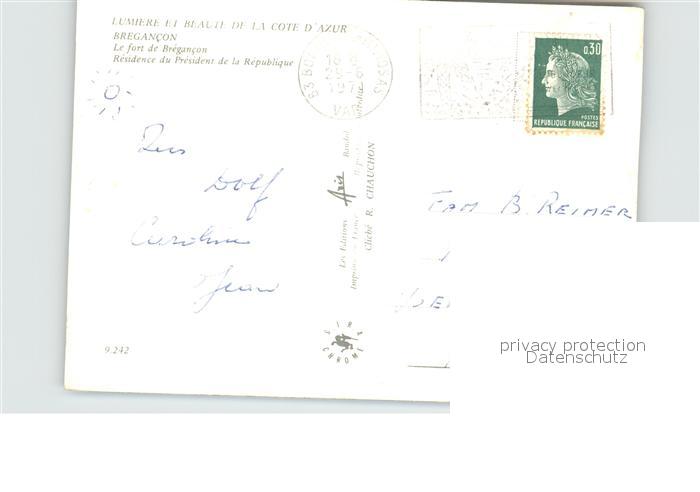 LUMIERE ET BEAUTE DE LA COTE D'AZUR
BREGANÇON
Le fort de Brégançon
Résidence du Président de la République
83 BO
VAR
0,30
POSTES
REPUBLIQUE FRANÇAISE
Dolf
Caroline
Jean
Les Editions Aris Bandol
Imprimé en France
Cliché R. CHAUCHON
FAM B. REIMER
9.242
privacy protection
Datenschutz